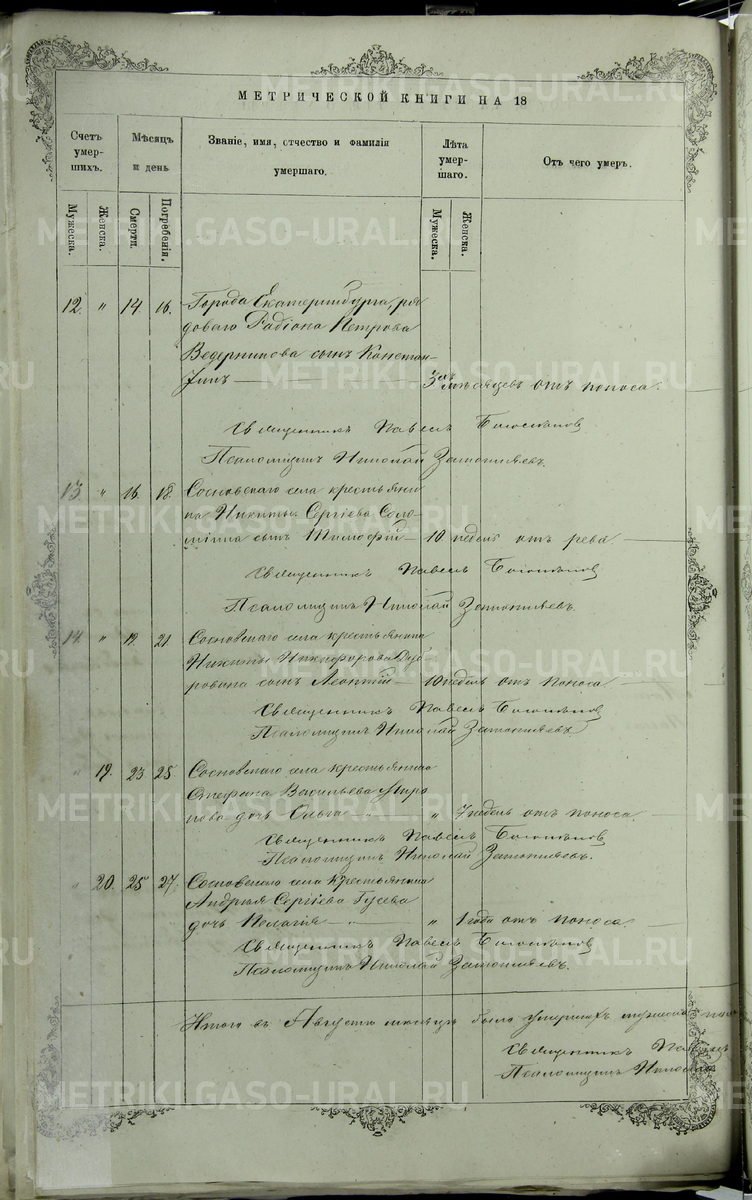 МЕТРИЧЕСКОЙ КНИГИ НА 18
Счетъ умер-шихъ.
Мѣсяцъ и день
Званіе, имя, отчество и фамилія умершаго.
Лѣта умер-шаго.
Отъ чего умеръ.
Мужеска.
Женска.
Смерти.
Погребенія.
Мужеска.
Женска.
12. " 14 16. Города Екатеринбурга, ря
доваго Радіона Петрова
Ведерникова сынъ Констан
тинъ — 3 мѣсяцевъ отъ поноса.
Священникъ Павелъ
Псаломщикъ Николай
13 " 16. 18. Сосновскаго села крестьяни
на Никиты Сергіева Соло
мина сынъ Тимофей — 10 недель отъ рева
Священникъ Павелъ
Псаломщикъ Николай
14. " 19. 21 Сосновскаго села крестьянина
Никиты Никифорова
сынъ Леонтій — 10 недель отъ поноса
Священникъ Павелъ
Псаломщикъ Николай
" 19. 23 25 Сосновскаго села крестьянина
Стефана Васильева Миро
нова дочь Ольга " 7 недель отъ поноса.
Священникъ Павелъ
Псаломщикъ Николай
" 20. 25 27. Сосновскаго села крестьянина
Андрея Сергіева Гусева
дочь Пелагія — " 1 года отъ поноса.
Священникъ Павелъ
Псаломщикъ Николай
Итого въ Августѣ месяцѣ было умершихъ мужеска
Священникъ Павелъ
Псаломщикъ Николай
METRIKI.GASO-URAL.RU